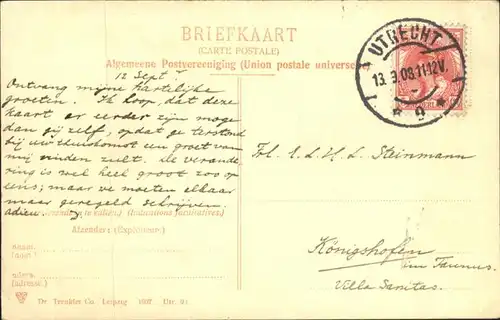 BRIEFKAART
(CARTE POSTALE)
Algemeene Postvereeniging (Union postale universe
UTRECHT
13. 9.08.11-12V.
* 9 *
12 Sept
Ontvang mijne hartelijke
groeten. Ik hoop, dat deze
kaart er eerder zijn moge
dan gij zelf, opdat ge terstond
bij uw thuiskomst een groet van
mij vinden zult. De verande
ring is wel heel groot zoo op
eens; maar we moeten elkaar
maar geregeld schrijven.
adieu. J.
(Indications facultatives.)
Afzender (Expéditeur.)
Naam.
(nom.)
Adres.
(adresse.)
Dr. Trenkler Co. Leipzig. 1907 Utr. 9
Frl. E. L. H. L. Steinmann
Königshofen
im Taunus.
Villa Sanitas.